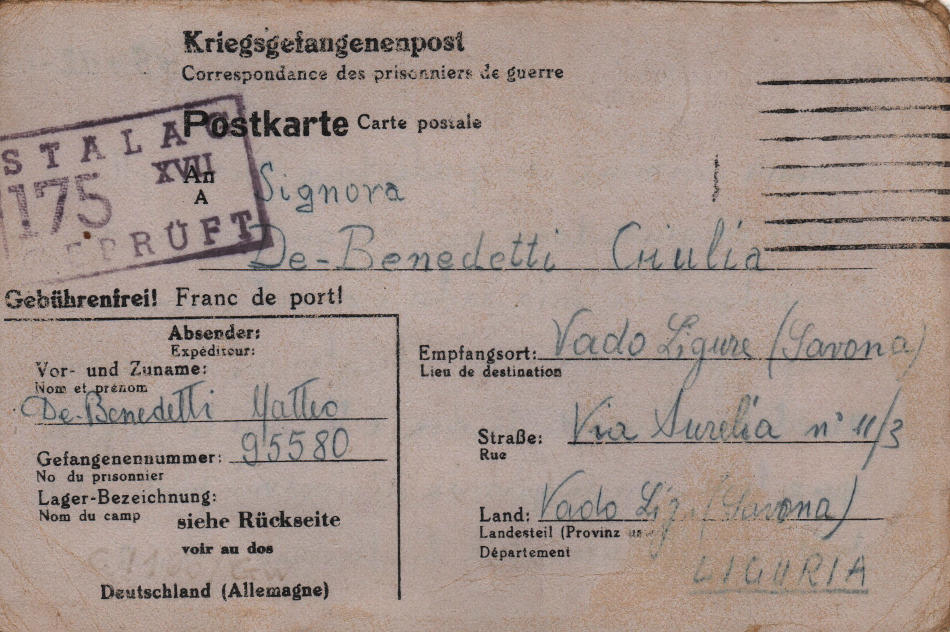 Kriegsgefangenenpost
Correspondance des prisonniers de guerre
Postkarte Carte postale
STALAG
XVII
175
GEPRÜFT
An
A
Signora
De-Benedetti Giulia
Gebührenfrei! Franc de port!
Absender:
Expéditeur:
Vor- und Zuname:
Nom et prénom
De-Benedetti Matteo
Gefangenennummer: 95580
No du prisonnier
Lager-Bezeichnung:
Nom du camp
siehe Rückseite
voir au dos
Deutschland (Allemagne)
Empfangsort: Vado Ligure (Savona)
Lieu de destination
Straße: Via Aurelia n° 11/3
Rue
Land: Vado Lig. (Savona)
Landesteil (Provinz
Département
LIGURIA